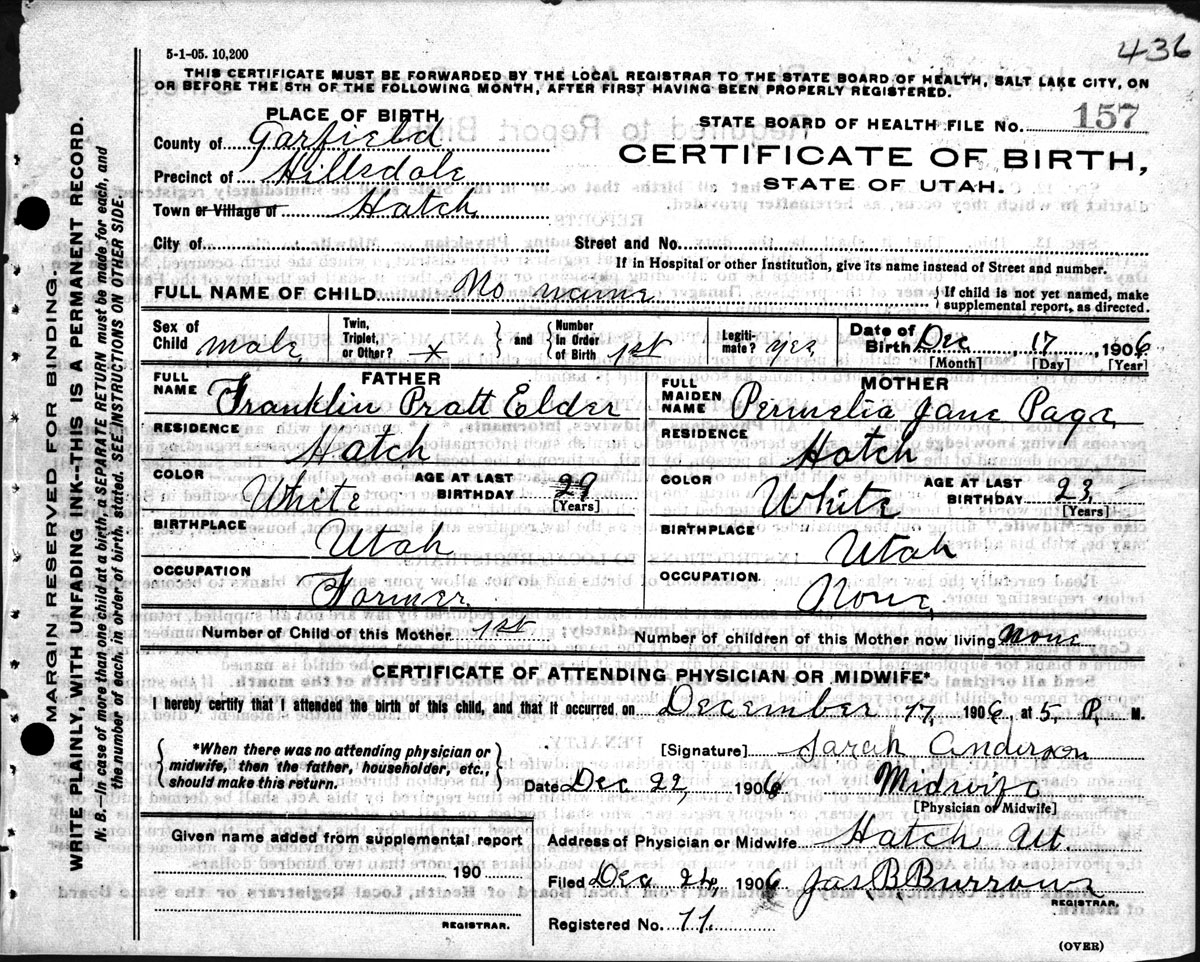 436
5-1-05. 10,200
THIS CERTIFICATE MUST BE FORWARDED BY THE LOCAL REGISTRAR TO THE STATE BOARD OF HEALTH, SALT LAKE CITY, ON
OR BEFORE THE 5TH OF THE FOLLOWING MONTH, AFTER FIRST HAVING BEEN PROPERLY REGISTERED.
PLACE OF BIRTH
County of Garfield
Precinct of Hillsdale
Town or Village of Hatch
City of
STATE BOARD OF HEALTH FILE No. 157
CERTIFICATE OF BIRTH,
STATE OF UTAH.
Street and No.
If in Hospital or other Institution, give its name instead of Street and number.
FULL NAME OF CHILD No name } If child is not yet named, make supplemental report, as directed.
Sex of Child male Twin, Triplet, or Other? * } and { Number in Order of Birth 1st Legiti-mate? yes Date of Birth Dec 17, 1906
[Month] [Day] [Year]
FATHER
FULL NAME Franklin Pratt Elder
RESIDENCE Hatch
COLOR White AGE AT LAST BIRTHDAY 29 [Years]
BIRTHPLACE Utah
OCCUPATION Farmer
MOTHER
FULL MAIDEN NAME Permelia Jane Page
RESIDENCE Hatch
COLOR White AGE AT LAST BIRTHDAY 23 [Years]
BIRTHPLACE Utah
OCCUPATION None
Number of Child of this Mother 1st Number of children of this Mother now living None
CERTIFICATE OF ATTENDING PHYSICIAN OR MIDWIFE*
I hereby certify that I attended the birth of this child, and that it occurred on December 17, 1906, at 5, P. M.
{ *When there was no attending physician or
midwife, then the father, householder, etc.,
should make this return. }
[Signature] Sarah Anderson
Date Dec 22, 1906 Midwife
[Physician or Midwife]
Given name added from supplemental report
190
REGISTRAR.
Address of Physician or Midwife Hatch Ut.
Filed Dec 24, 1906 Jas B Burrows
REGISTRAR.
Registered No. 11.
(OVER)
MARGIN RESERVED FOR BINDING.
WRITE PLAINLY, WITH UNFADING INK--THIS IS A PERMANENT RECORD.
N. B.—In case of more than one child at a birth, a SEPARATE RETURN must be made for each, and
the number of each, in order of birth, stated. SEE INSTRUCTIONS ON OTHER SIDE.